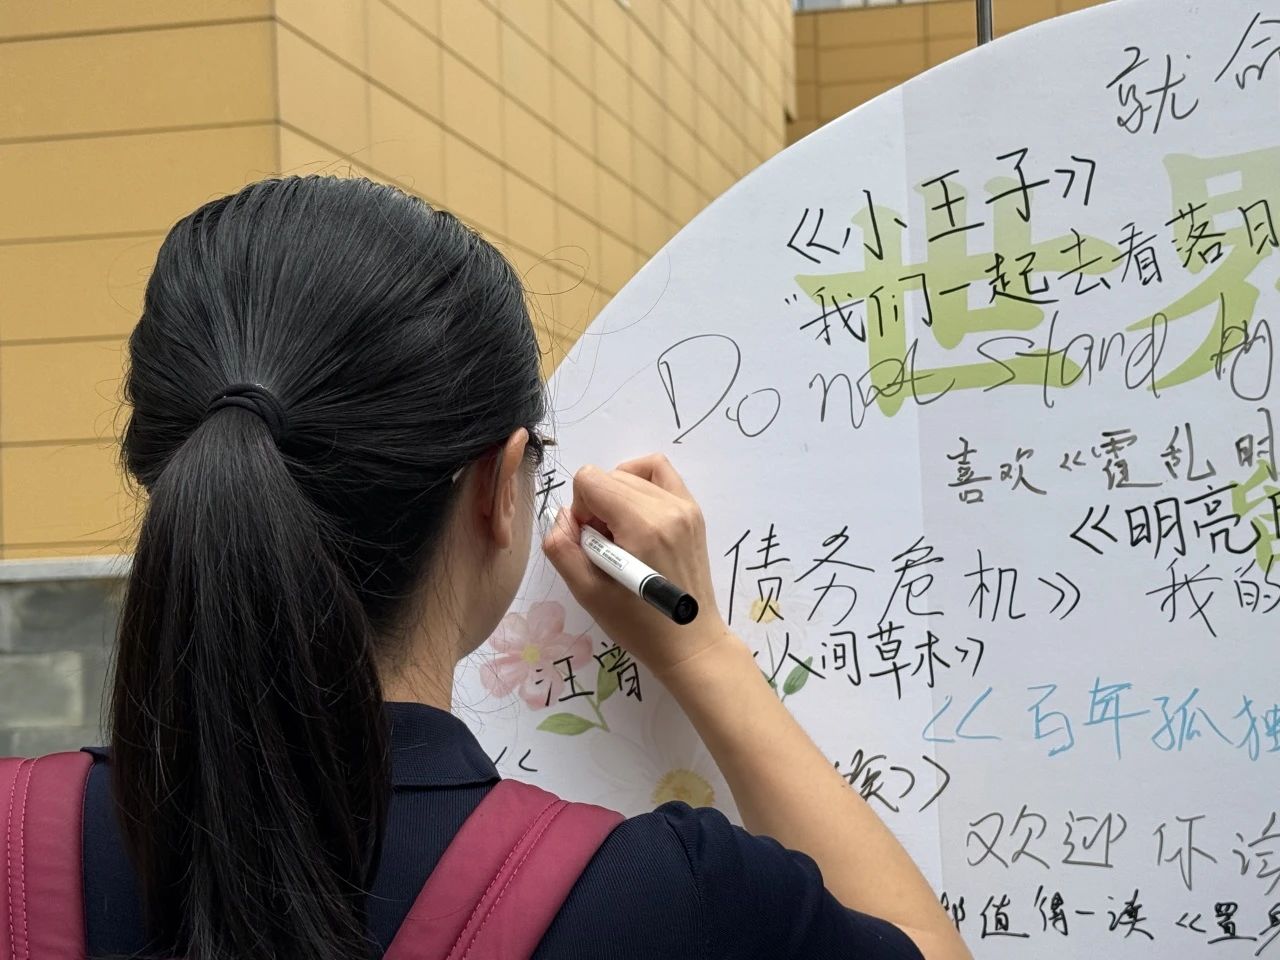 就命
《小王子》
世界
"我们一起去看落日
Do not stand by
喜欢《霍乱时
《明亮
债务危机》
我的
人间草木》
汪曾
《百年孤独
《
》
欢迎你读
值得一读《置身